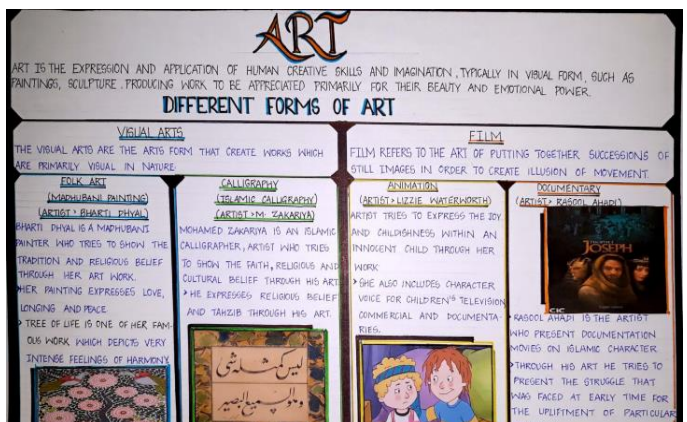 ART
ART IS THE EXPRESSION AND APPLICATION OF HUMAN CREATIVE SKILLS AND IMAGINATION, TYPICALLY IN VISUAL FORM, SUCH AS
PAINTINGS, SCULPTURE. PRODUCING WORK TO BE APPRECIATED PRIMARILY FOR THEIR BEAUTY AND EMOTIONAL POWER.
DIFFERENT FORMS OF ART
VISUAL ARTS
THE VISUAL ARTS ARE THE ARTS FORM THAT CREATE WORKS WHICH
ARE PRIMARILY VISUAL IN NATURE.
FOLK ART
(MADHUBANI PAINTING)
(ARTIST > BHARTI DHYAL)
BHARTI DHYAL IS A MADHUBANI
PAINTER WHO TRIES TO SHOW THE
TRADITION AND RELIGIOUS BELIEF
THROUGH HER ART WORK.
> HER PAINTING EXPRESSES LOVE,
LONGING AND PEACE.
> TREE OF LIFE IS ONE OF HER FAM-
OUS WORK WHICH DEPICTS VERY
INTENSE FEELINGS OF HARMONY
CALLIGRAPHY
(ISLAMIC CALLIGRAPHY)
(ARTIST > M. ZAKARIYA)
MOHAMED ZAKARIYA IS AN ISLAMIC
CALLIGRAPHER, ARTIST WHO TRIES
TO SHOW THE FAITH, RELIGIOUS AND
CULTURAL BELIEF THROUGH HIS ART
> HE EXPRESSES RELIGIOUS BELIEF
AND TAHZIB THROUGH HIS ART.
ليس كمثله شيء
وهو السميع البصير
FILM
FILM REFERS TO THE ART OF PUTTING TOGETHER SUCCESSIONS OF
STILL IMAGES IN ORDER TO CREATE ILLUSION OF MOVEMENT.
ANIMATION
(ARTIST > LIZZIE WATERWORTH)
ARTIST TRIES TO EXPRESS THE JOY
AND CHILDISHNESS WITHIN AN
INNOCENT CHILD THROUGH HER
WORK
> SHE ALSO INCLUDES CHARACTER
VOICE FOR CHILDREN'S TELEVISION
COMMERCIAL AND DOCUMENTA-
RIES.
DOCUMENTARY
(ARTIST > RASOOL AHADI)
JOSEPH
CIC
> RASOOL AHADI IS THE ARTIST
WHO PRESENT DOCUMENTATION
MOVIES ON ISLAMIC CHARACTER
> THROUGH HIS ART HE TRIES TO
PRESENT THE STRUGGLE THAT
WAS FACED AT EARLY TIME FOR
THE UPLIFTMENT OF PARTICULAR